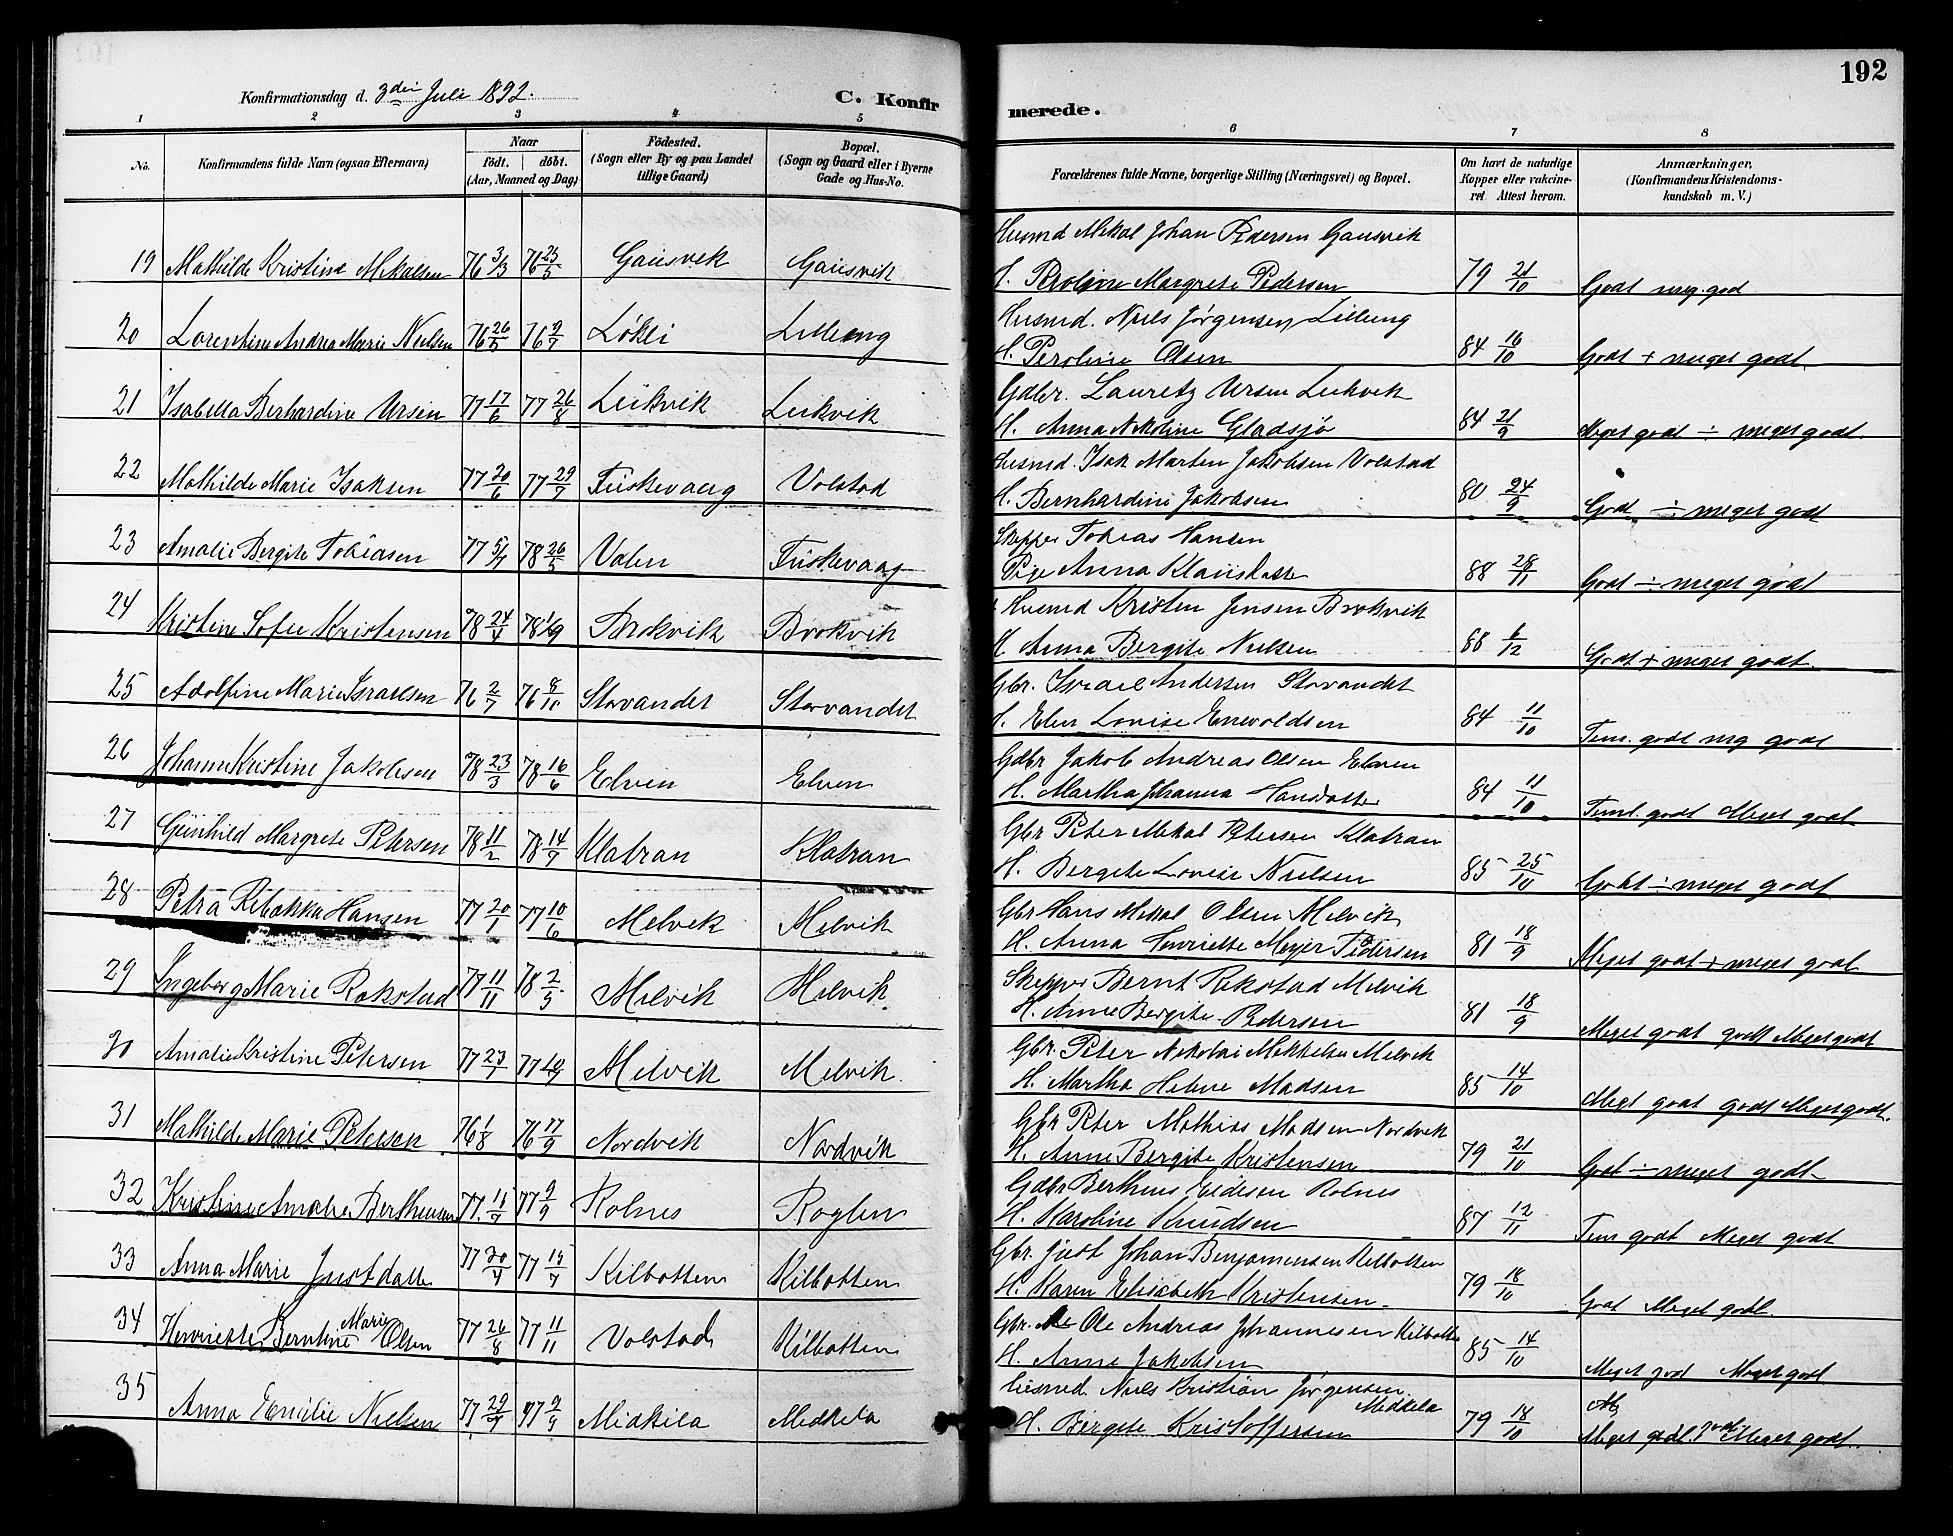 192
Konfirmationsdag d. 3die Juli 1892. C. Konfirmerede.
1 2 3 4 5 6 7 8
No. Konfirmandens fulde Navn (ogsaa Efternavn) Naar födt. döbt. (Aar, Maaned og Dag) Födested. (Sogn eller By og paa Landet tillige Gaard) Bopæl. (Sogn og Gaard eller i Byerne Gade og Hus-No. Forældrenes fulde Navne, borgerlige Stilling (Næringsvei) og Bopæl. Om havt de naturlige Kopper eller vakcineret Attest herom. Anmærkninger, (Konfirmandens Kristendomskundskab m. V.)
Husmd Mikal Johan Pedersen Gausvik
19 Mathilde Kristine Mikalsen 76 3/3 76 25/5 Gausvik Gausvik H. Peroline Margrete Pedersen 79 21/10 Godt meg. god
Husmd. Niels Jørgensen Lilleng
20 Lorentine Andrea Marie Nielsen 76 26/5 76 9/7 Løkli Lilleng H. Peroline Olsen 84 16/10 Godt + meget godt.
Gdbr. Lauretz Ursin Leikvik
21 Isabella Berhardine Ursin 77 17/6 77 26/8 Leikvik Leikvik H. Anna Nikoline Gladsjø 84 21/9 Meget godt ÷ meget godt.
Husmd. Isak Marten Jakobsen Volstad
22 Mathilde Marie Isaksen 77 20/6 77 29/7 Fuskevaag Volstad H. Bernhardine Jakobsen 80 24/9 God ÷ meget godt
Skipper Tobias Hansen
23 Amalie Bergite Tobiasen 77 5/7 78 26/5 Valen Fuskevaag Pige Anna Klausdatter 88 28/11 Godt ÷ meget godt
Husmd Kristen Jensen Brokvik
24 Kristine Sofie Kristensen 78 24/4 78 1/9 Brokvik Brokvik H. Anna Bergite Nielsen 88 6/12 Godt + meget godt
Gbr. Israel Andersen Storvandet
25 Adolfine Marie Israelsen 76 2/7 76 8/10 Storvandet Storvandet H. Elen Lovise Enevoldsen 84 11/10 Tem. godt meg godt
Gdbr Jakob Andreas Olsen Elven
26 Johanne Kristine Jakobsen 78 23/3 78 16/6 Elven Elven H. Martha Johanna Hansdatter 84 11/10 Teml. godt Meget godt
Gbr Peter Mikal Petersen Klatran
27 Gunhild Margrete Petersen 78 11/2 78 14/7 Klatran Klatran H. Bergite Lovise Nielsen 85 25/10 Godt ÷ meget godt
Gbr Hans Mikal Olsen Melvik
28 Petra Rebekka Hansen 77 20/1 77 10/6 Melvik Melvik H. Anna Henriette Meyer Pedersen 81 18/9 Meget godt + meget godt
Skipper Bernt Rokstad Melvik
29 Ingeborg Marie Rokstad 77 11/11 78 2/5 Melvik Melvik H. Anne Bergite Pedersen 81 18/9 Meget godt godt Meget godt
Gbr. Peter Nikolai Mikkelsen Melvik
30 Amalie Kristine Petersen 77 23/1 Melvik Melvik H. Martha Helene Madsen 85 14/10 Meget godt godt Meget godt.
Gbr Peter Mathias Madsen Nordvik
31 Mathilde Marie Petersen 76 1/8 76 17/9 Nordvik Nordvik H. Anne Bergite Kristensen 79 21/10 Godt ÷ meget godt
Gdbr Bertheus Rolnes
32 Kristine Amalie Bertheusen 77 9/9 Rolnes Roglen H. Karoline Knudsen 87 12/11 Tem godt Meget godt
Gbr. Just Johan Benjaminsen Kilbotten
33 Anna Marie Justdatter 77 20/4 77 15/7 Kilbotten Kilbotten H. Karen Elisabeth Kristensen 79 18/10 Godt Meget godt
Gbr. Ole Andreas Johannesen Kilbotten
34 Henriette Berntine Marie Olsen 77 26/8 77 11/11 Volstad Kilbotten H. Anne Jakobsen 85 14/10 Meget god Meget godt
Husmd. Niels Kristian Jørgensen Midkila
35 Anna Emilie Nielsen Midkila Midkila H. Bergete Kristoffersen 79 18/10 Meget godt. godt Meget godt.